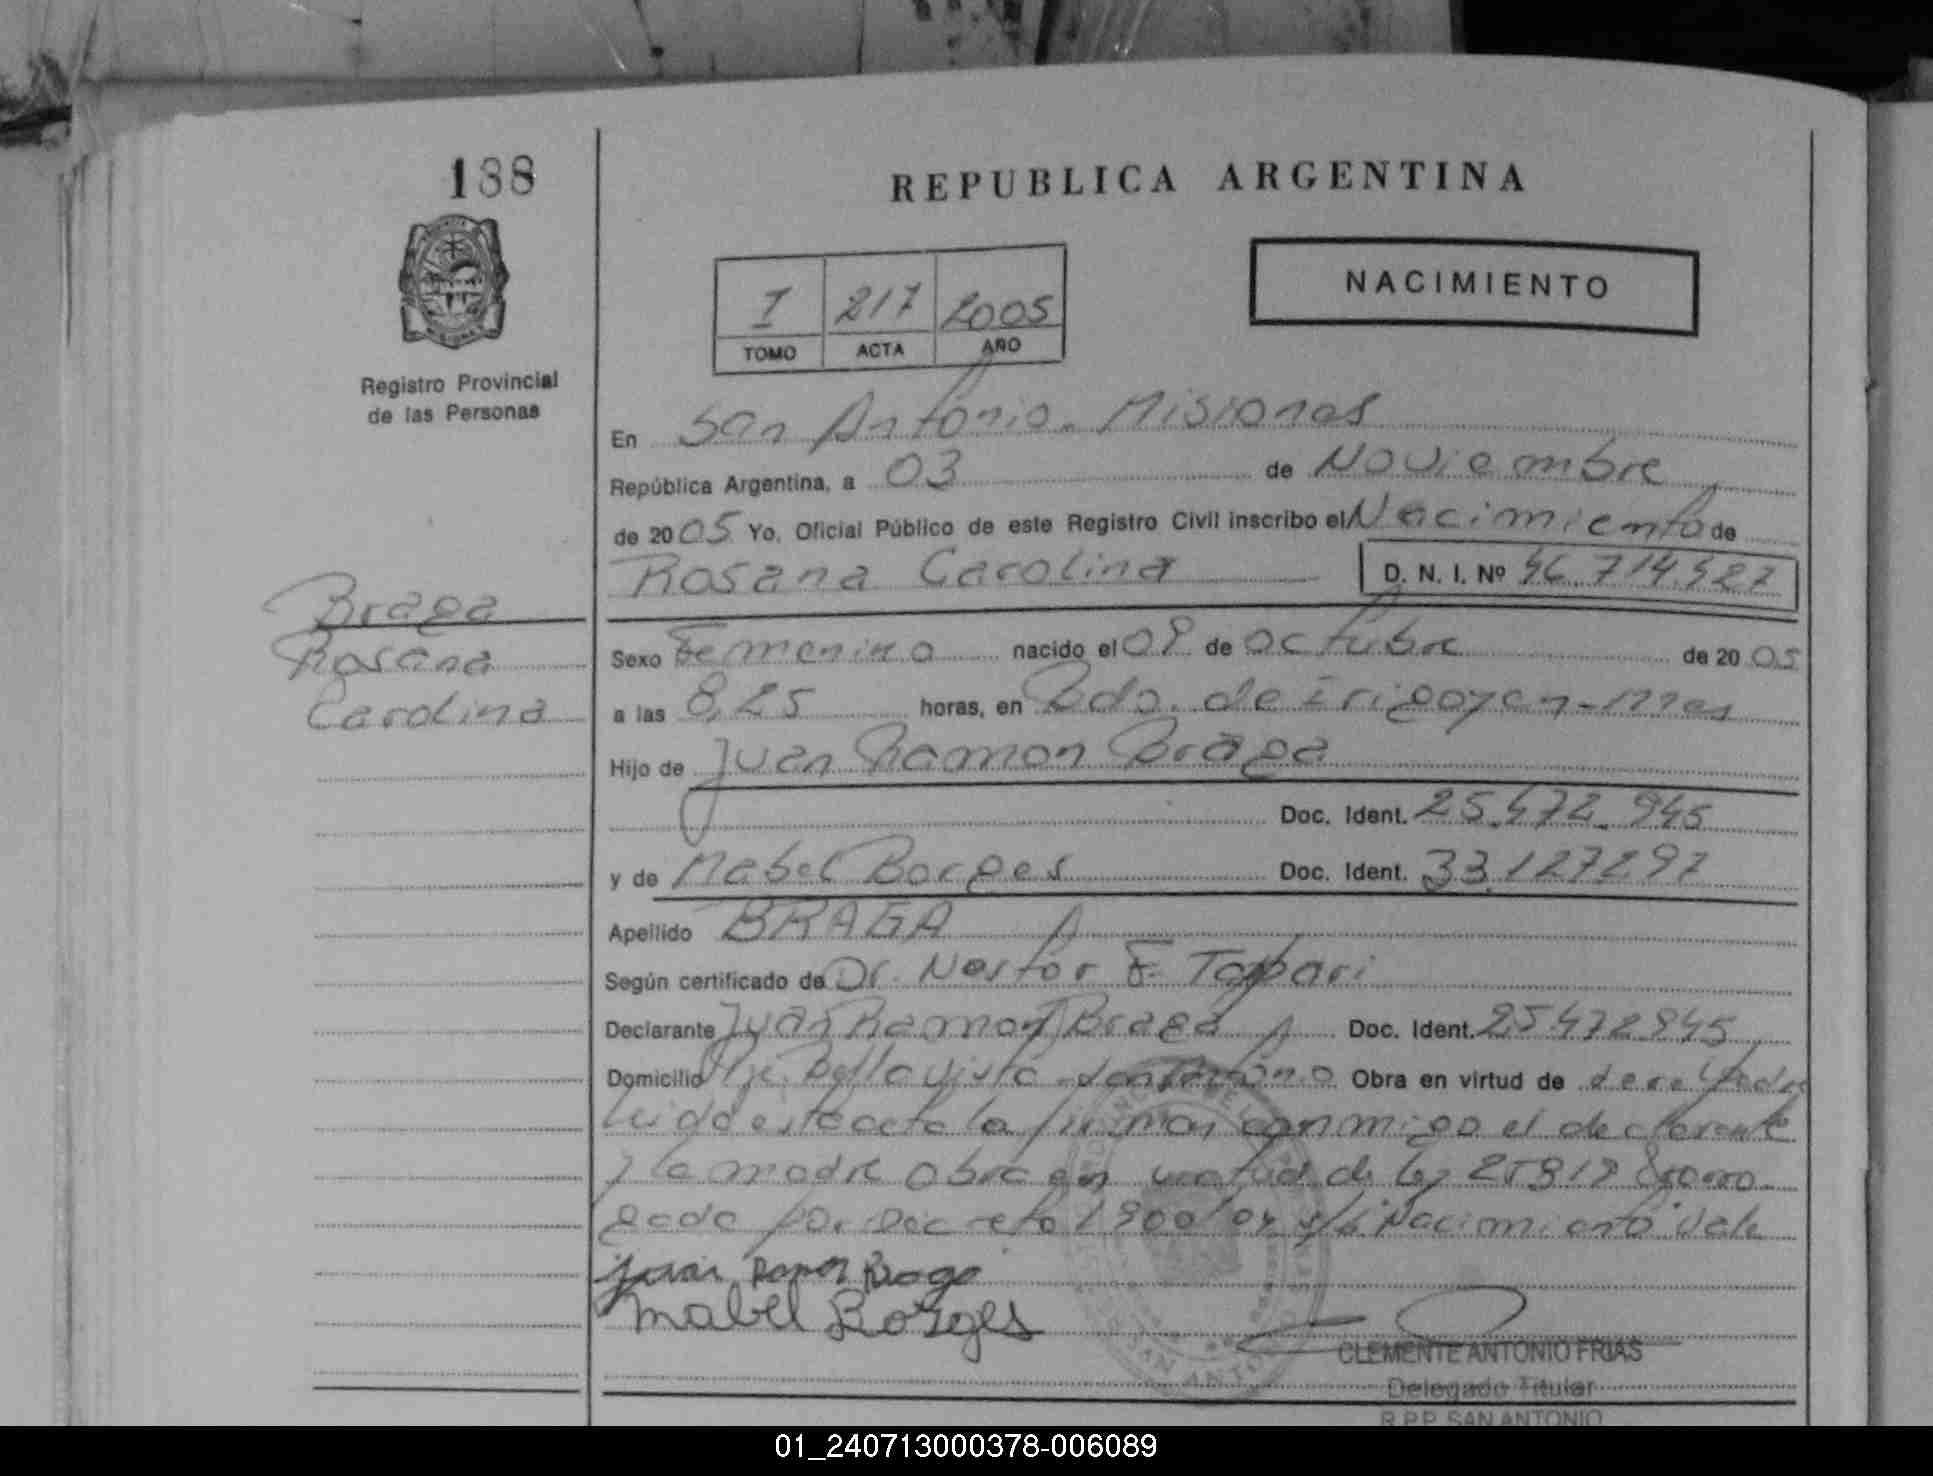 188
REPUBLICA ARGENTINA
NACIMIENTO
I 217 2005
TOMO ACTA AÑO
Registro Provincial
de las Personas
En San Antonio - Misiones
República Argentina, a 03 de Noviembre
de 2005 Yo, Oficial Público de este Registro Civil inscribo el Nacimiento de
Rosana Carolina D. N. I. Nº 46.714.427
Braga
Rosana
Carolina
Sexo Femenino nacido el 09 de octubre de 2005
a las 8,25 horas, en Bdo. de irigoyen - mnes
Hijo de Juan Ramon Braga
Doc. Ident. 25.472.945
y de Mabel Borges Doc. Ident. 33.127297
Apellido BRAGA
Según certificado de Dr. Nestor F. Tappari
Declarante Juan Ramon Braga Doc. Ident. 25472945
Domicilio Pje. Bella vista - San Antonio Obra en virtud de
Leido este acta la firman conmigo el declarante
y la madre obra en virtud de ley 25819 prorro
gada por decreto 1900/04 s/b "Nacimiento" vale
Juan Ramon Braga
Mabel Borges
SAN ANTONIO
CLEMENTE ANTONIO FRIAS
Delegado Titular
R.P.P. SAN ANTONIO
01_240713000378-006089